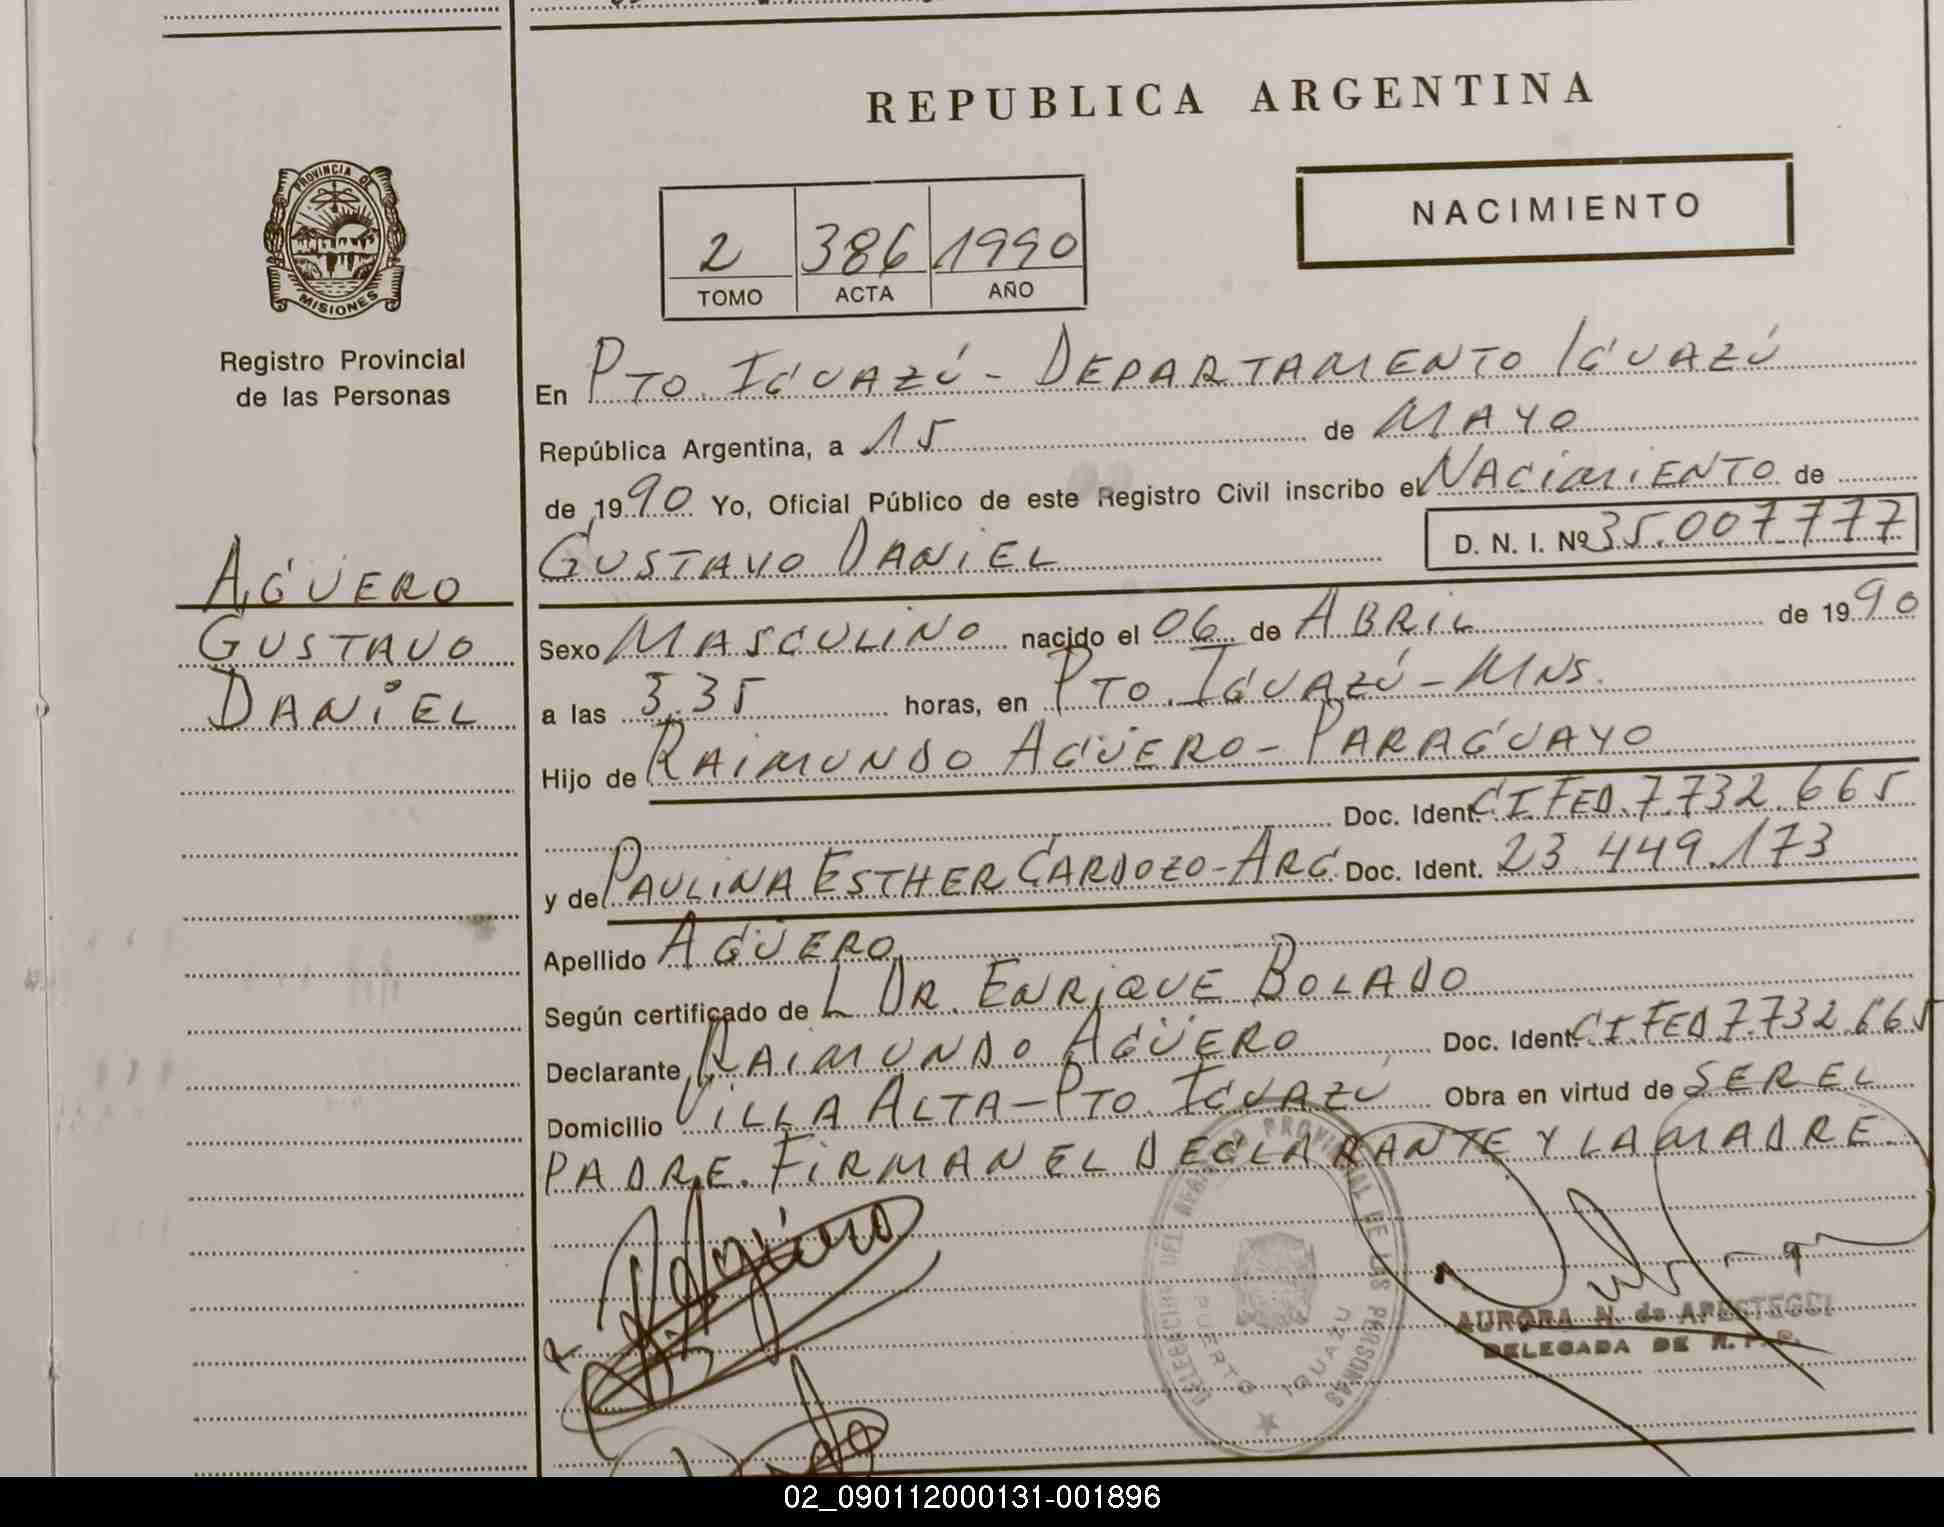 REPUBLICA ARGENTINA
PROVINCIA DE
MISIONES
Registro Provincial
de las Personas
NACIMIENTO
2 386 1990
TOMO ACTA AÑO
En PTO. IGUAZÚ - DEPARTAMENTO IGUAZÚ
República Argentina, a 15 de MAYO
de 1990 Yo, Oficial Público de este Registro Civil inscribo el NACIMIENTO de
GUSTAVO DANIEL D. N. I. Nº 35.007777
AGÜERO
GUSTAVO
DANIEL
Sexo MASCULINO nacido el 06 de ABRIL de 1990
a las 3,35 horas, en PTO. IGUAZÚ - MNS.
Hijo de RAIMUNDO AGÜERO - PARAGUAYO
Doc. Ident. CI. FED. 7.732.665
y de PAULINA ESTHER CARDOZO - ARG. Doc. Ident. 23.449.173
Apellido AGÜERO
Según certificado de L DR. ENRIQUE BOLADO
Declarante RAIMUNDO AGÜERO Doc. Ident. CI. FED 7.732.665
Domicilio VILLA ALTA - PTO. IGUAZÚ Obra en virtud de SER EL
PADRE. FIRMAN EL DECLARANTE Y LA MADRE.
PROVINCIAL DE LAS PERSONAS
PUERTO IGUAZU
AURORA N. de
DELEGADA DE R. P.
02_090112000131-001896